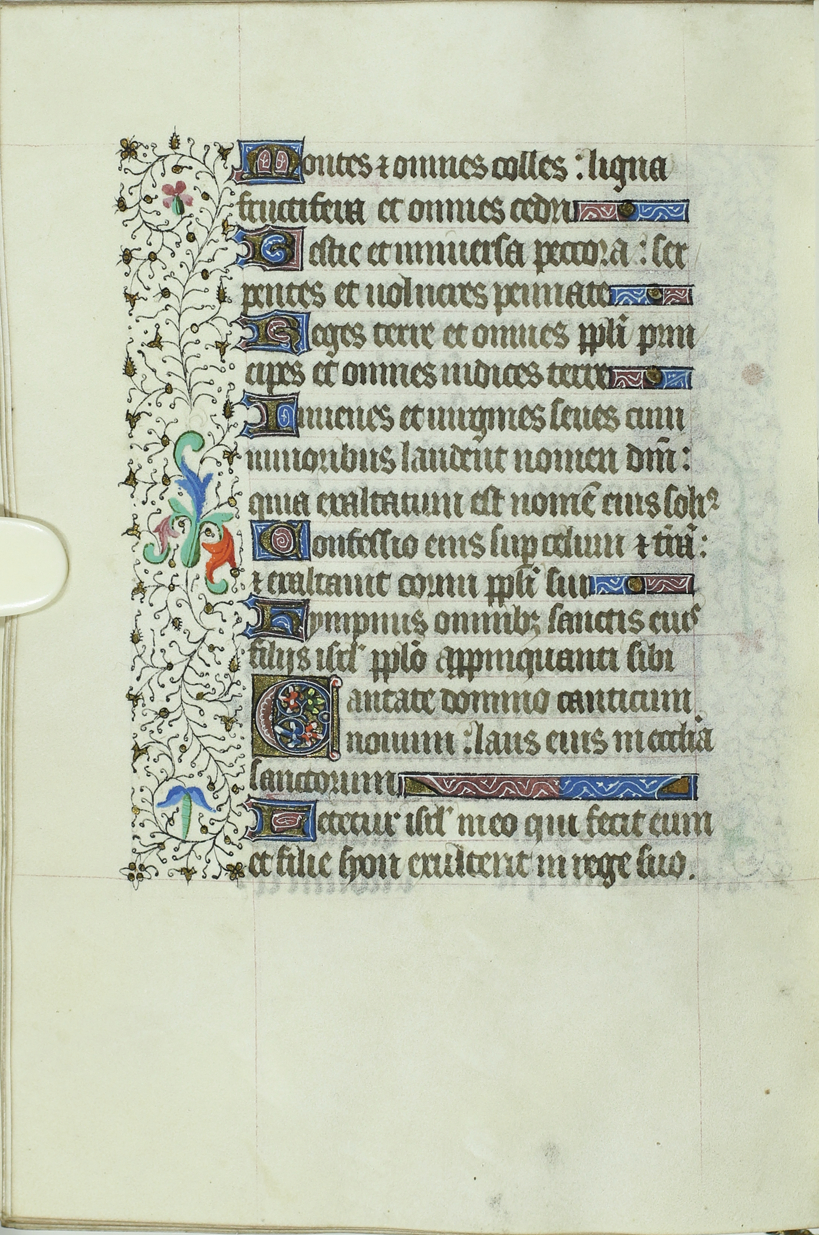 Montes ⁊ omnes colles : ligna
fructifera et omnes cedri
Bestie et universa peccora : ser
pentes et volucres pennate
Reges terre et omnes ppl̄i prin
cipes et omnes iudices terre
Iuvenes et virgines senes cum
iunioribus laudēt nomen dn̄i :
quia exaltatum est nomē eius soliꝰ
Confessio eius suꝑ celum ⁊ t̄rā :
⁊ exaltavit cornu ppl̄i sui
Hympnus omnibꝫ sanctis eius
filijs isrl̄ ppl̄o appinquanti sibi
Cantate domino canticum
novum : laus eius in eccl̄ia
sanctorum
Letetur isrl̄ in eo qui fecit eum
et filie syon exultent in rege suo .